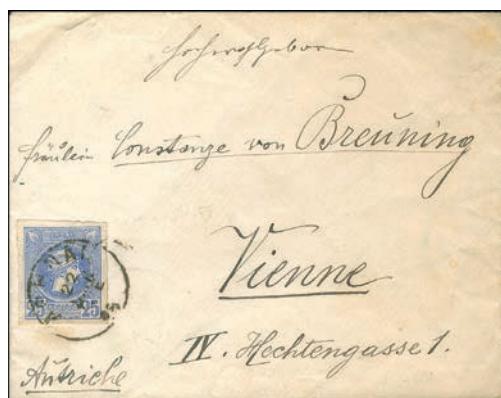 Hochwohlgeboren
Fräulein Constanze von Breuning
25 25
Vienne
IV. Hechtengasse 1.
Autriche